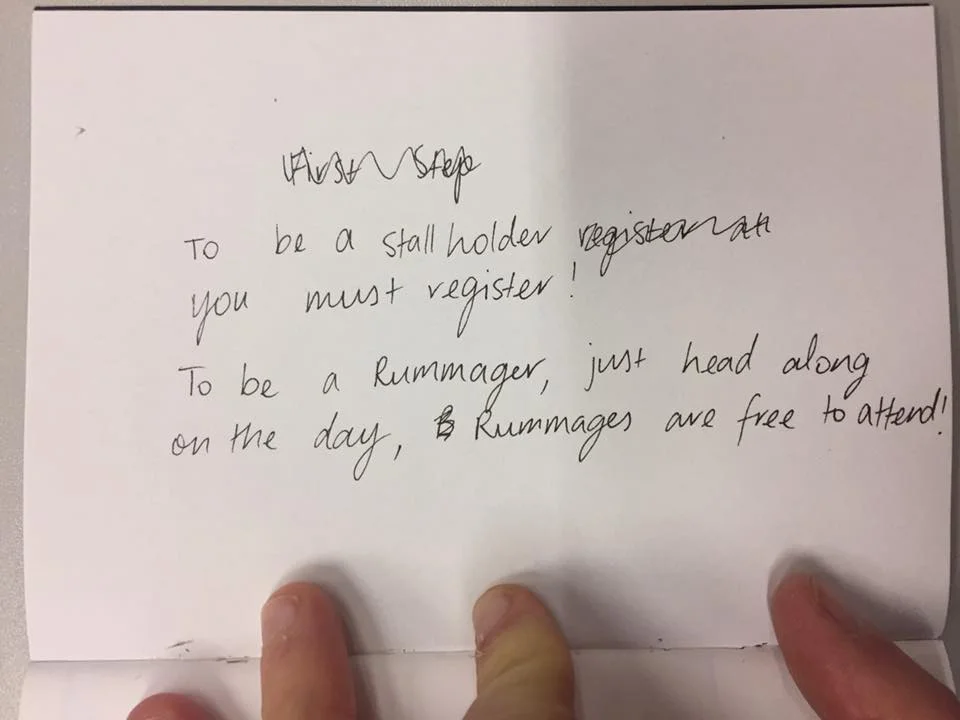 First Step
To be a stall holder register at
you must register!
To be a Rummager, just head along
on the day, Rummages are free to attend!